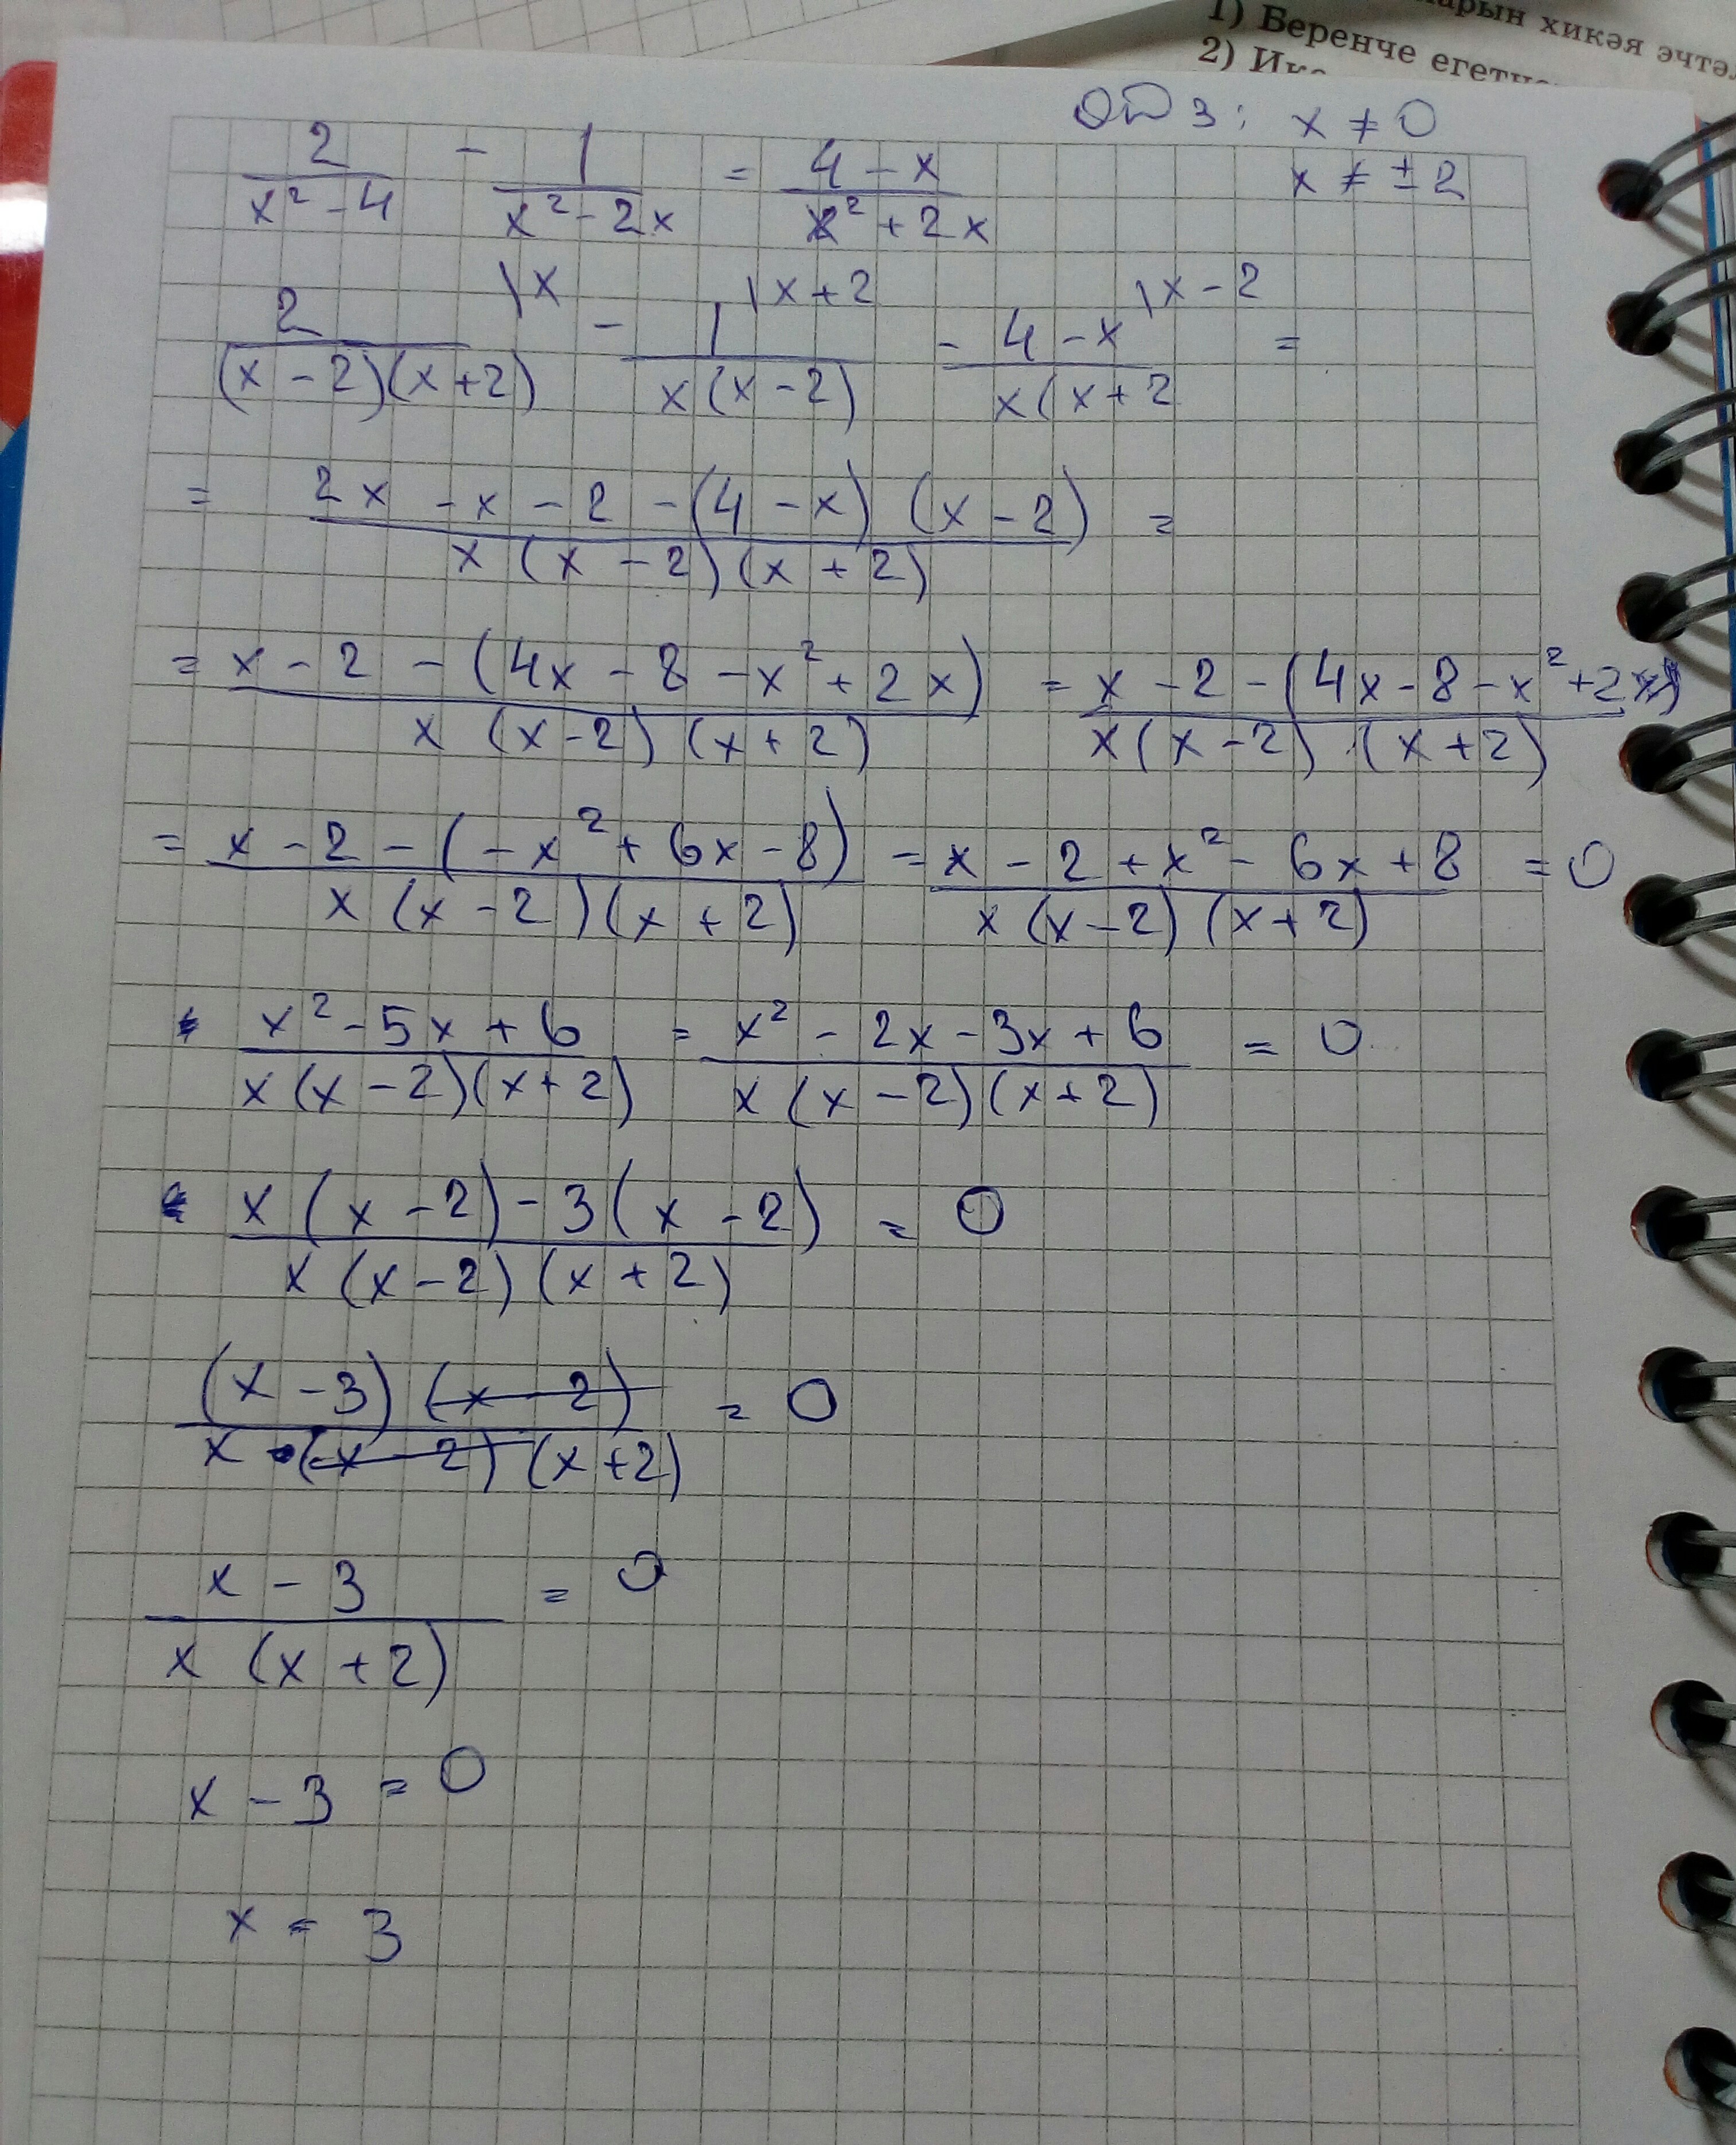 арын хикәя эчтә
1) Беренче егетне
2) Ик
ОДЗ: x ≠ 0
x ≠ ±2
2/(x² - 4) - 1/(x² - 2x) = (4 - x)/(x² + 2x)
2/((x - 2)(x + 2)) \x - 1/(x(x - 2)) \x + 2 - (4 - x)/(x(x + 2 \x - 2 =
= (2x - x - 2 - (4 - x)(x - 2))/(x(x - 2)(x + 2)) =
= (x - 2 - (4x - 8 - x² + 2x))/(x(x - 2)(x + 2)) = (x - 2 - (4x - 8 - x² + 2x))/(x(x - 2)(x + 2))
= (x - 2 - (-x² + 6x - 8))/(x(x - 2)(x + 2)) = (x - 2 + x² - 6x + 8)/(x(x - 2)(x + 2)) = 0
(x² - 5x + 6)/(x(x - 2)(x + 2)) = (x² - 2x - 3x + 6)/(x(x - 2)(x + 2)) = 0
(x(x - 2) - 3(x - 2))/(x(x - 2)(x + 2)) = 0
((x - 3)(x - 2))/(x(x - 2)(x + 2)) = 0
(x - 3)/(x(x + 2)) = 0
x - 3 = 0
x = 3